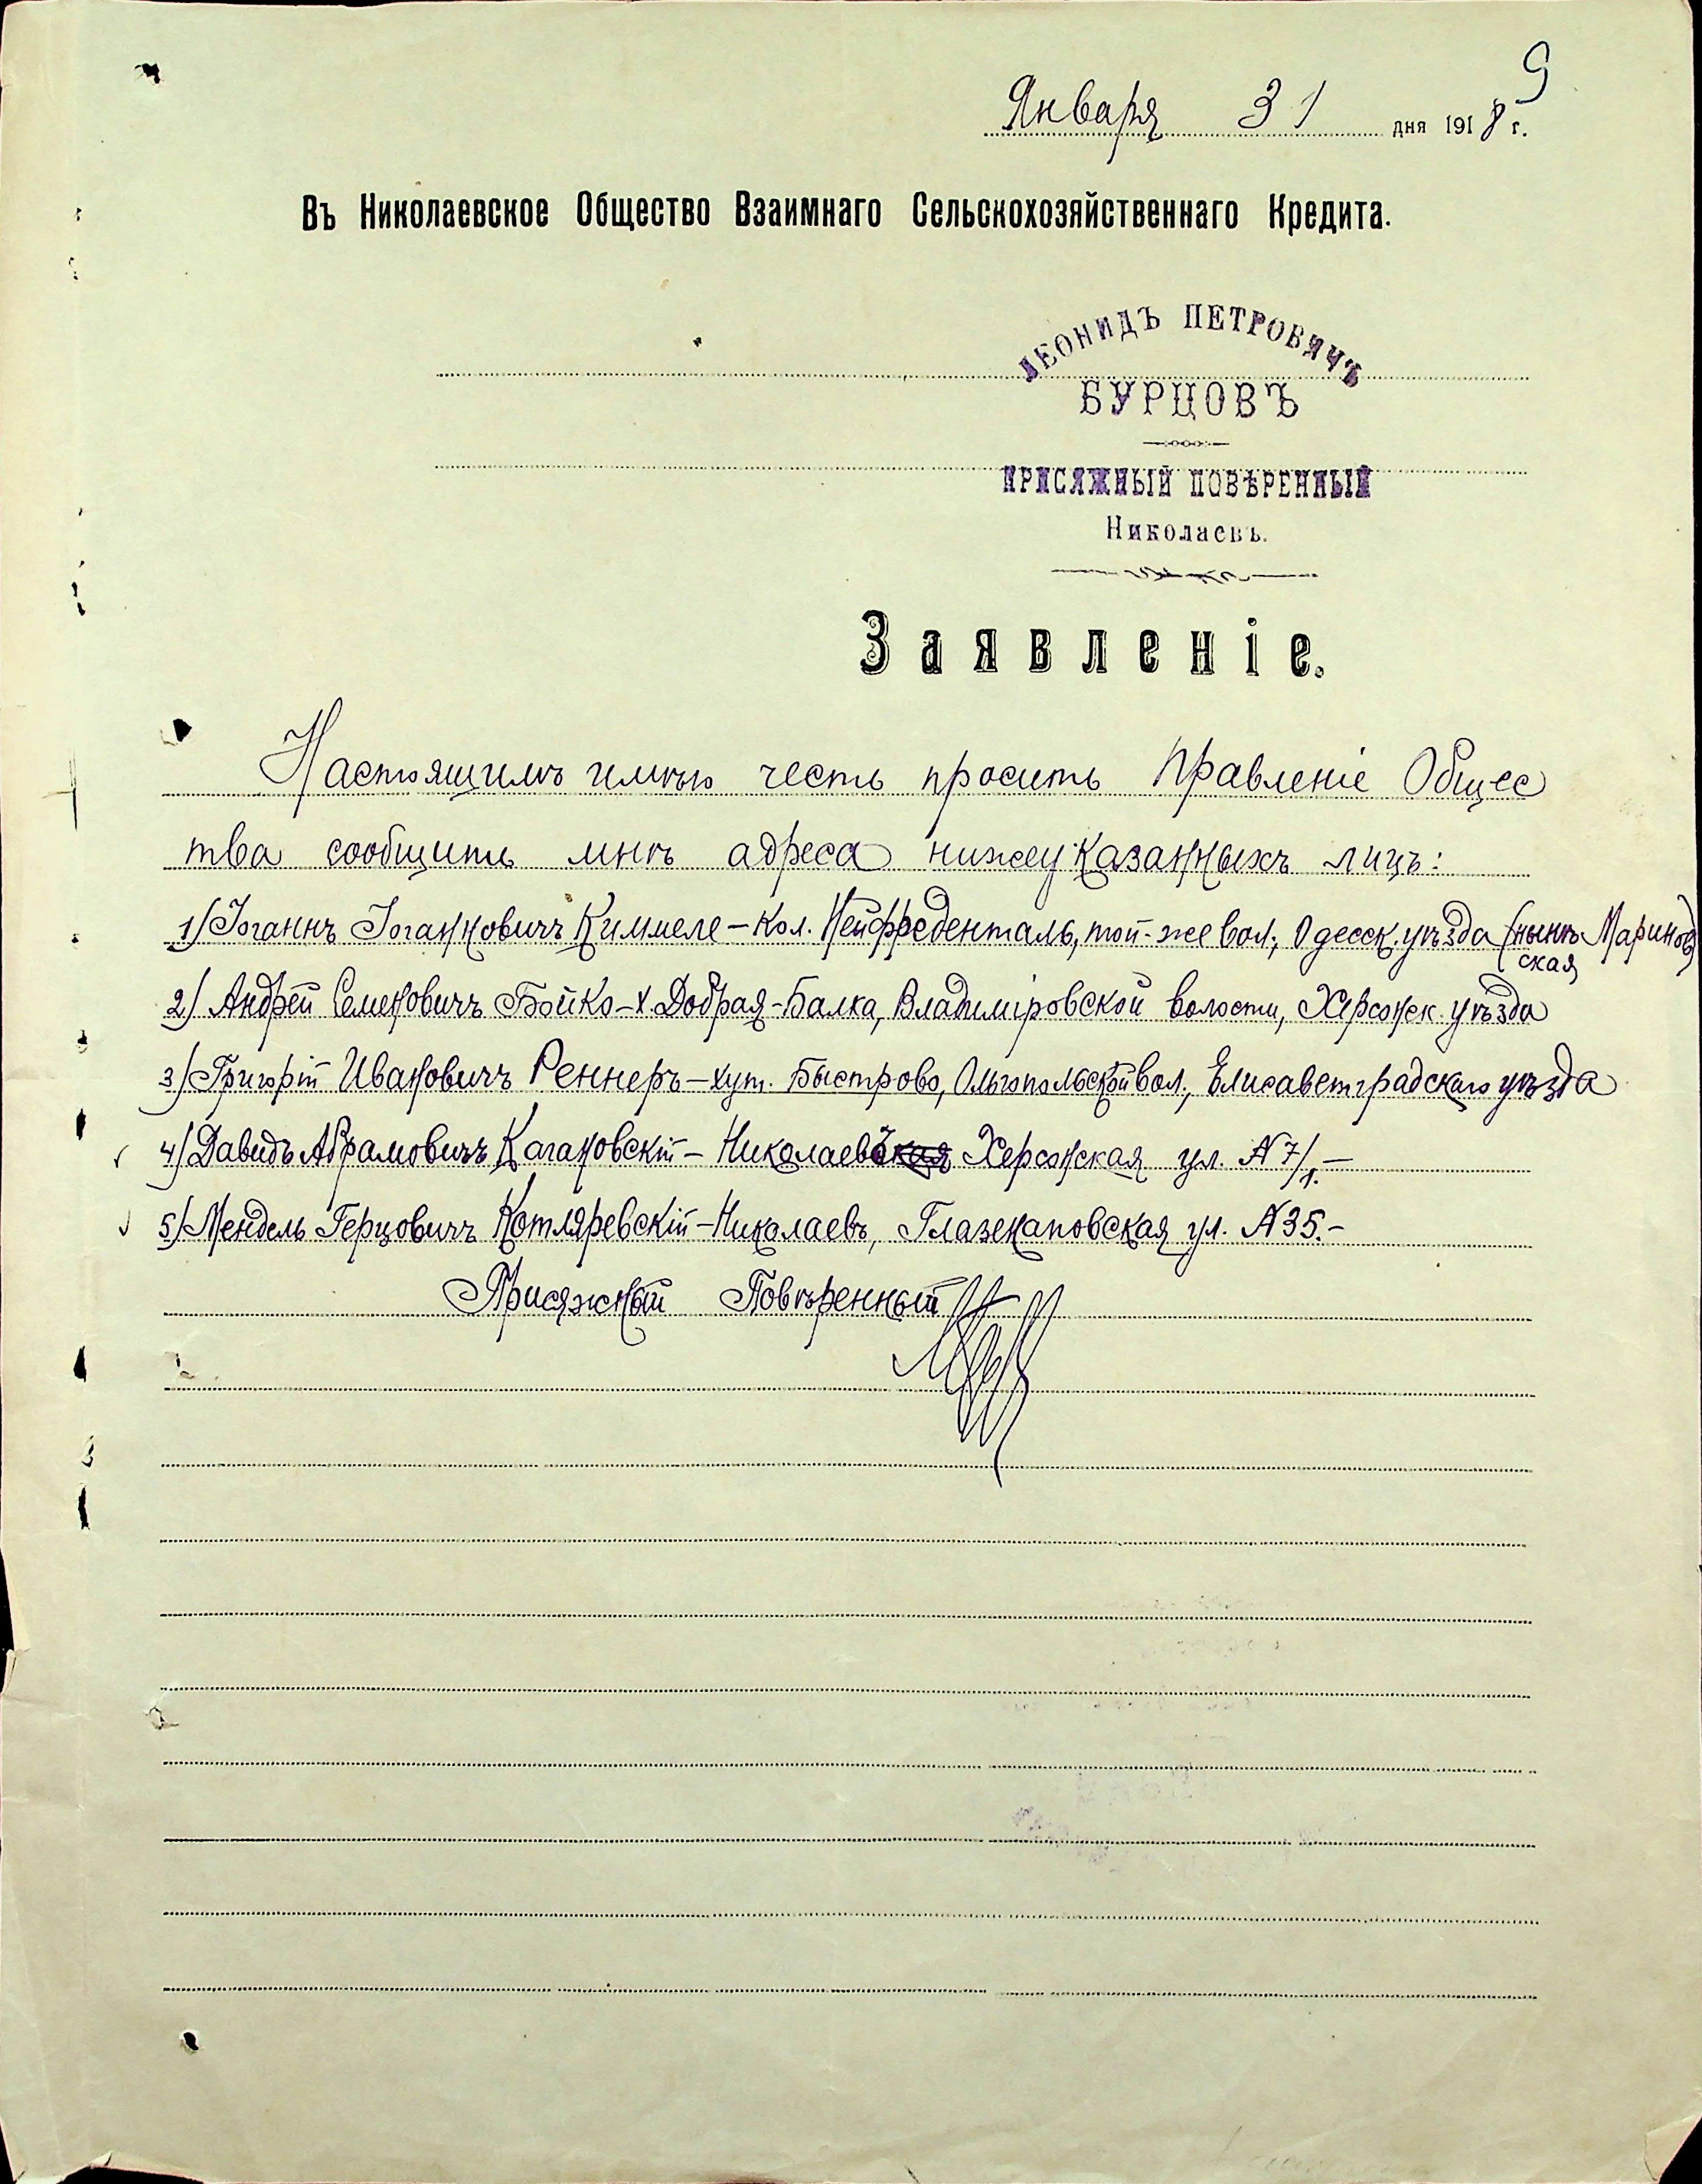 9
Января 31 дня 1918 г.
Въ Николаевское Общество Взаимнаго Сельскохозяйственнаго Кредита.
ЛЕОНИДЪ ПЕТРОВИЧЪ
БУРЦОВЪ
ПРИСЯЖНЫЙ ПОВѢРЕННЫЙ
Николаевъ.
Заявленіе.
Настоящимъ имѣю честь просить Правленіе Общес
тва сообщить мнѣ адреса нижеуказанныхъ лицъ:
1) Іоганнъ Іоганновичъ Киммеле – Кол. Нейфреденталь, той-же вол., Одесск. уѣзда (нынѣ Маринов
ская)
2) Андрей Семеновичъ Бойко – х. Добрая-Балка, Владиміровской волости, Херсонск. уѣзда
3) Григорій Ивановичъ Реннеръ – хут. Быстрово, Ольгопольской вол., Елисаветградскаго уѣзда
4) Давидъ Абрамовичъ Кагановскій – Николаевъ Херсонская ул. № 7/1. –
5) Мендель Герцовичъ Котляревскій – Николаевъ, Глазенаповская ул. № 35. –
Присяжный Повѣренный